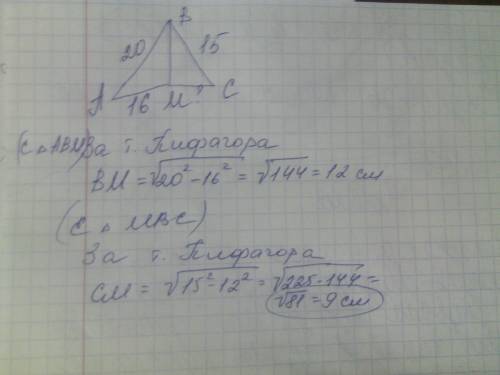 B
20 15
A 16 M ? C
(с △ ABM) За т. Пифагора
BM = √20² - 16² = √144 = 12 см
(с △ MBC)
За т. Пифагора
CM = √15² - 12² = √225 - 144 =
√81 = 9 см